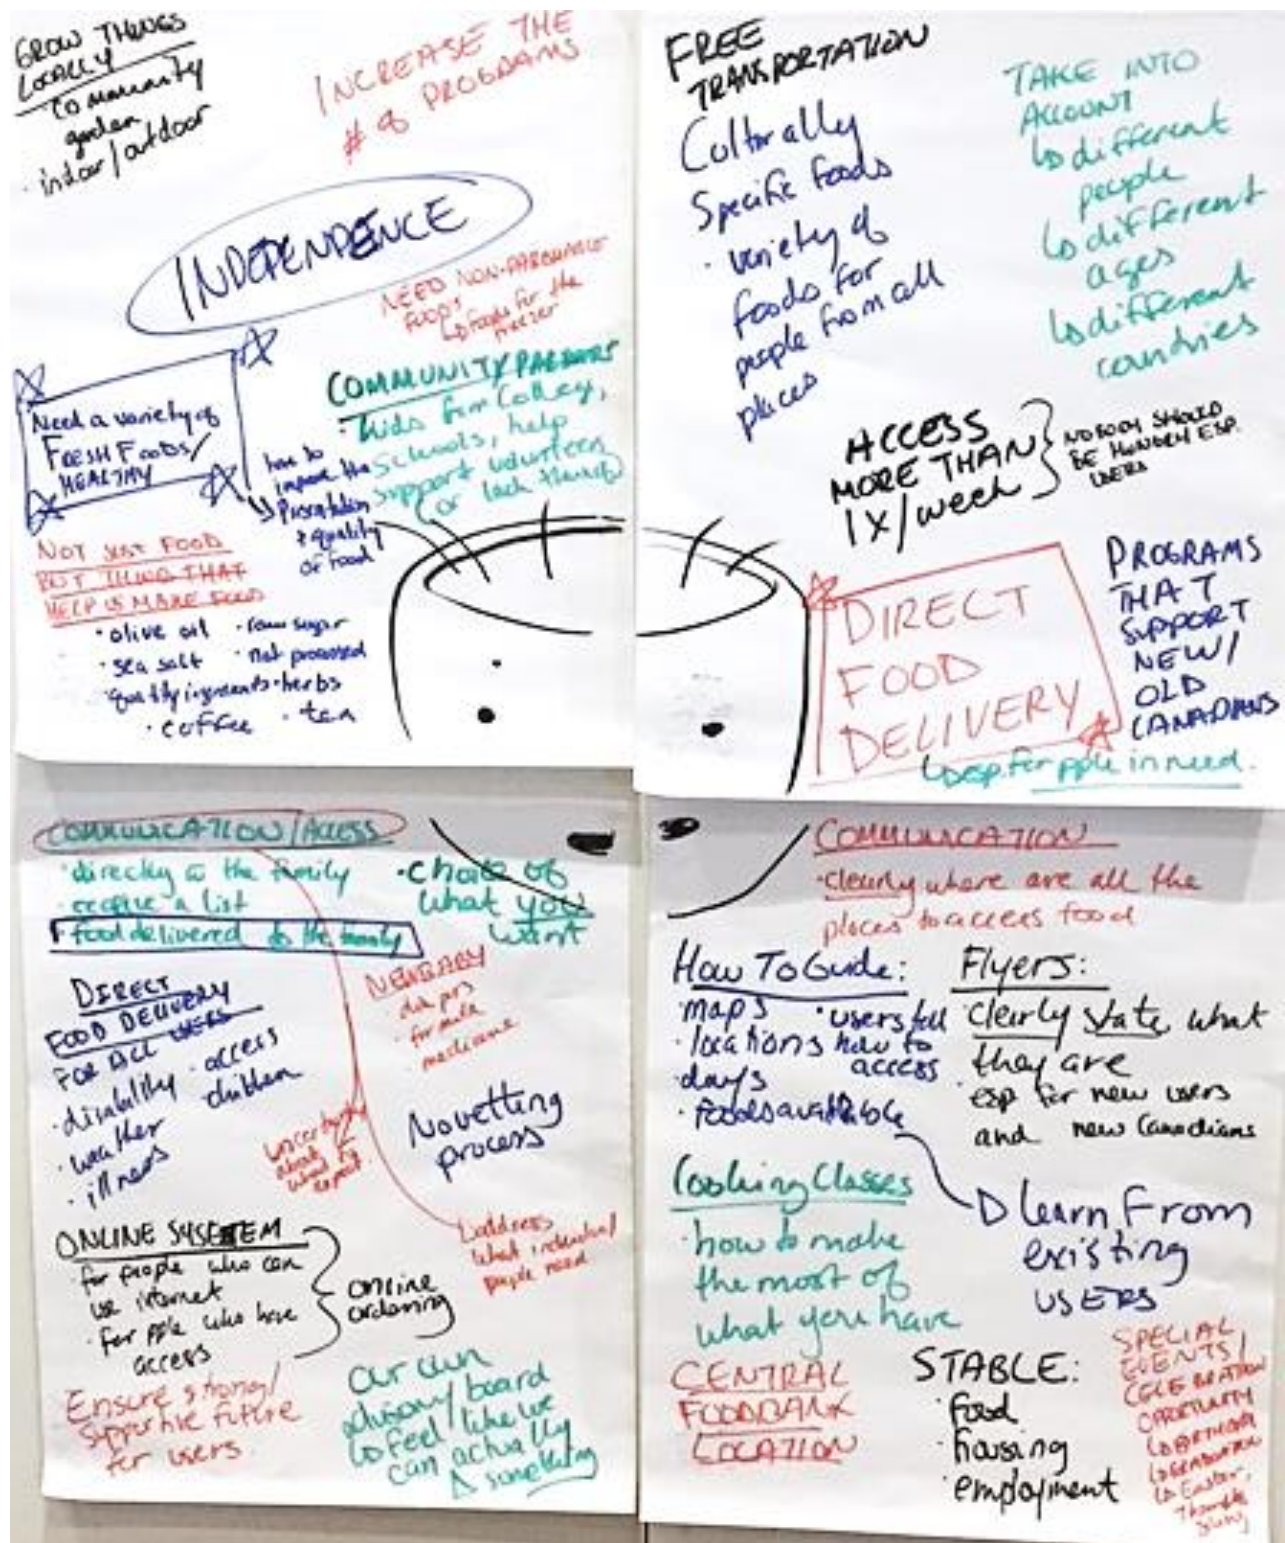 GROW THINGS
LOCALLY
Community
garden
· indoor/outdoor
INCREASE THE
# of PROGRAMS
INDEPENDENCE
NEED NON-PARISHABLE
FOODS
↳ foods for the
freezer
Need a variety of
FRESH FOODS/
HEALTHY
how to
improve the
Presentation
+ quality
of food
COMMUNITY PARTNERS
· kids from college,
schools, help
support volunteers
or lack thereof
NOT JUST FOOD
BUT THINGS THAT
HELP US MAKE FOOD
· olive oil · raw sugar
· sea salt · not processed
· quality ingredients · herbs
· coffee · tea
FREE
TRANSPORTATION
Culturally
Specific foods
· variety of
foods for
people from all
places
TAKE INTO
ACCOUNT
↳ different
people
↳ different
ages
↳ different
countries
ACCESS
MORE THAN
1X/week
NOBODY SHOULD
BE HUNGRY ESP.
USERS
DIRECT
FOOD
DELIVERY
↳ esp. for pple in need.
PROGRAMS
THAT
SUPPORT
NEW/
OLD
CANADIANS
COMMUNICATION/ACCESS
· directly to the family
· receive a list
· food delivered to the family
· choice of
what you
want
DIRECT
FOOD DELIVERY
FOR ALL USERS
· disability · access
· weather children
· illness
NEW BABY
· diapers
· formula
medicine
No vetting
process
uncertainty
about
what to
expect.
↳ address
what individual/
people need
ONLINE SYSTEM
· for people who can
use internet
· for pple who have
access
online
ordering
Ensure strong/
supportive future
for users.
Our own
advisory board
↳ feel like we
can actually
Δ something
COMMUNICATION
· clearly where are all the
places to access food
How To Guide:
· maps
· locations
days
· foods available
· users tell
how to
access
Flyers:
· clearly state what
they are
· esp for new users
and new Canadians
Cooking Classes
· how to make
the most of
what you have
learn from
existing
USERS
CENTRAL
FOODBANK
LOCATION
STABLE:
· food
· housing
· employment
SPECIAL
EVENTS/
CELEBRATION
OPPORTUNITY
↳ BIRTHDAY
↳ Easter,
Thanksgiving